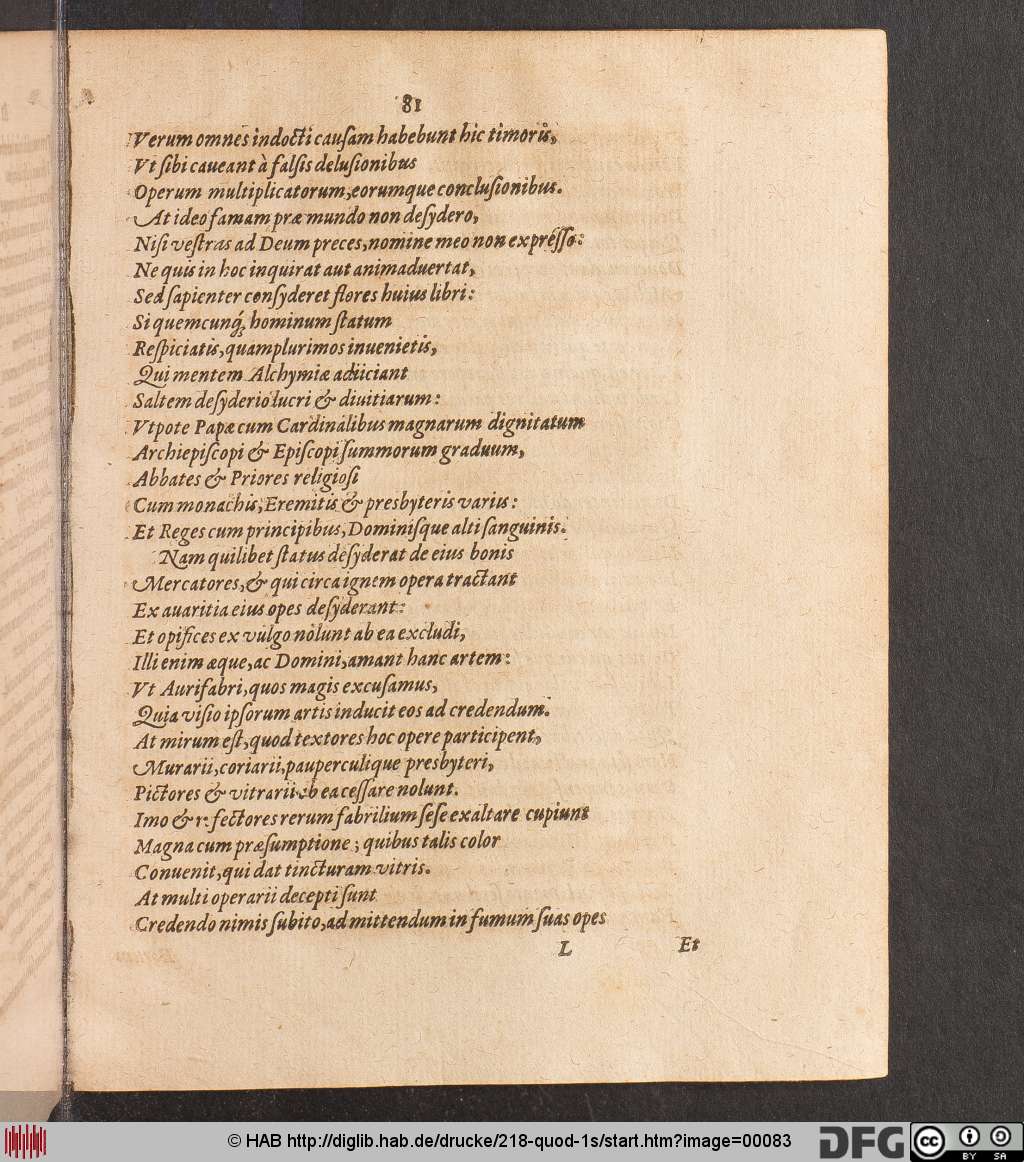 81
Verum omnes indocti causam habebunt hic timoris,
Vt sibi caueant à falsis delusionibus
Operum multiplicatorum, eorumque conclusionibus.
At ideo famam præ mundo non desydero,
Nisi vestras ad Deum preces, nomine meo non expresso:
Ne quis in hoc inquirat aut animaduertat,
Sed sapienter consyderet flores huius libri:
Si quemcunq́; hominum statum
Respiciatis, quamplurimos inuenietis,
Qui mentem Alchymiæ adiiciant
Saltem desyderio lucri & diuitiarum:
Vtpote Papæ cum Cardinalibus magnarum dignitatum
Archiepiscopi & Episcopi summorum graduum,
Abbates & Priores religiosi
Cum monachis, Eremitis & presbyteris variis:
Et Reges cum principibus, Dominisque alti sanguinis.
Nam quilibet status desyderat de eius bonis
Mercatores, & qui circa ignem opera tractant
Ex auaritia eius opes desyderant:
Et opifices ex vulgo nolunt ab ea excludi,
Illi enim æque, ac Domini, amant hanc artem:
Vt Aurifabri, quos magis excusamus,
Quia visio ipsorum artis inducit eos ad credendum.
At mirum est, quod textores hoc opere participent,
Murarii, coriarii, pauperculique presbyteri,
Pictores & vitrarii ab ea cessare nolunt.
Imo & refectores rerum fabrilium sese exaltare cupiunt
Magna cum præsumptione; quibus talis color
Conuenit, qui dat tincturam vitris.
At multi operarii decepti sunt
Credendo nimis subito, ad mittendum in fumum suas opes
L Et
© HAB http://diglib.hab.de/drucke/218-quod-1s/start.htm?image=00083
DFG
cc BY SA